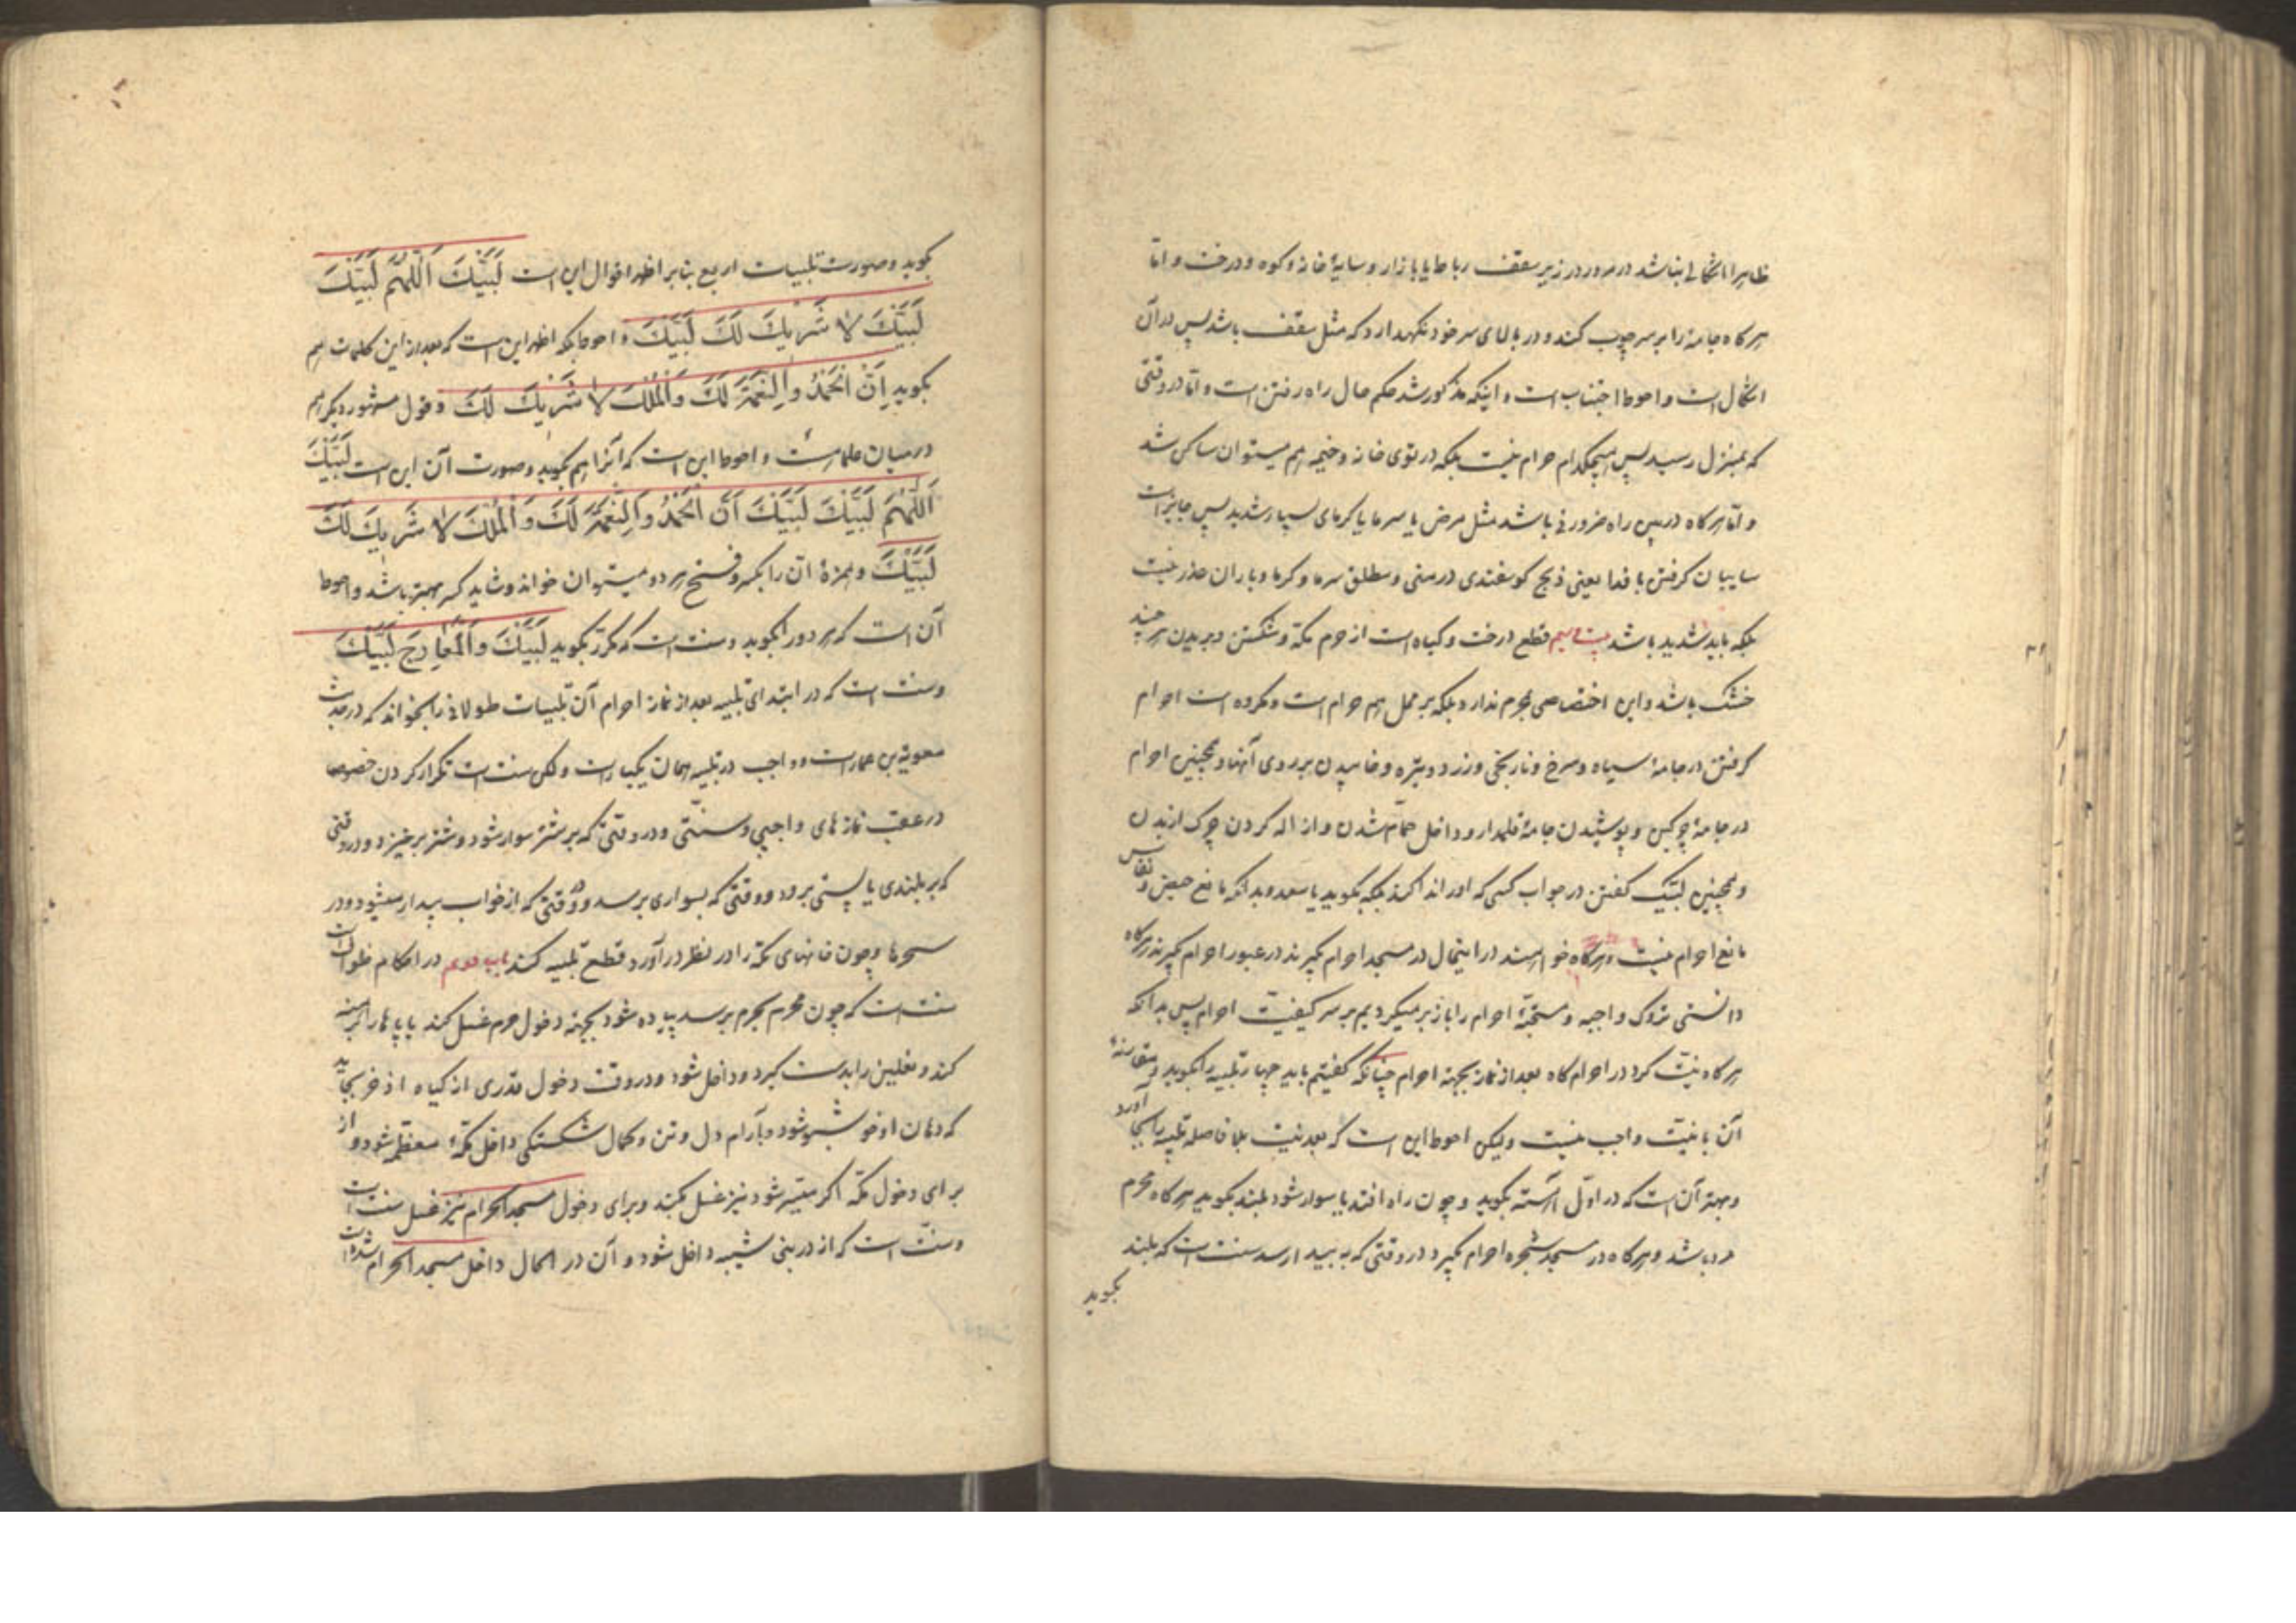 ظاهرا اشکالی نباشد در مرور در زیر سقف رباط یا بازار و سایهٔ خانه و کوه و درخت و امّا
هرگاه جامهٔ را بر سر چوب کند و در بالای سر خود نگهدارد که مثل سقف باشد پس در آن
اشکال است و احوط اجتناب است و اینکه مذکور شد حکم حال راه رفتن است و امّا در وقتی
که بمنزل رسید پس هیچکدام حرام نیست بلکه در توی خانه و خیمه هم میتوان ساکن شد
و امّا هرگاه در بین راه ضرورتی باشد مثل مرض یا سرما یا گرمای بسیار شدید پس جایز است
سایبان گرفتن با فدا یعنی ذبح گوسفندی در منی و مطلق سرما و گرما و باران عذر نیست
بلکه باید شدید باشد قطع درخت و گیاه است از حرم مکّه و شکستن و بریدن هر چند
خشک باشد و این اختصاصی بمحرم ندارد بلکه بر محل هم حرام است و مکروه است احرام
گرفتن در جامهٔ سیاه و سرخ و نارنجی و زرد و تیره و خوابیدن بر روی آنها و همچنین احرام
در جامهٔ چرکین و پوشیدن جامهٔ قلمدار و داخل حمّام شدن و ازاله کردن چرک از بدن
و همچنین لبّیک گفتن در جواب کسی که او را ندا کند بلکه بگوید یا سعد و بدانکه مانع حیض و نفاس
مانع احرام نیست و هرگاه خواهند در اینحال در مسجد احرام بگیرند در عبور احرام بگیرند هرگاه
دانستی تروک واجبه و مستحبّهٔ احرام را باز بر میگردیم بر سر کیفیّت احرام پس بدانکه
هرگاه نیّت کرد در احرام گاه بعد از نماز بجهة احرام چنانکه گفتیم باید چهار تلبیه را بگوید و مقارنهٔ
آن با نیّت واجب نیست ولیکن احوط این است که بعد نیّت بلا فاصله تلبیه را بجا آورد
و بهتر آن است که در اوّل آهسته بگوید و چون راه افتد یا سوار شود بلند بگوید هرگاه محرم
مرد باشد و هرگاه در مسجد شجره احرام بگیرد در وقتی که به بیدا رسد سنّت است که بلند
بگوید
بگوید و صورت تلبیات اربع بنابر اظهر اقوال این است لَبَّیْکَ اَللّٰهُمَّ لَبَّیْکَ
لَبَّیْکَ لَا شَرِیكَ لَكَ لَبَّیْكَ و احوط بلکه اظهر این است که بعد از این کلمات هم
بگوید اِنَّ الْحَمْدَ وَالنِّعْمَةَ لَكَ وَالْمُلْكَ لَا شَرِیكَ لَكَ و قول مشهور دیگر هم
در میان علما هست و احوط این است که آنرا هم بگوید و صورت آن این است لَبَّیْكَ
اَللّٰهُمَّ لَبَّیْكَ لَبَّیْكَ اَنَّ الْحَمْدَ وَالنِّعْمَةَ لَكَ وَالْمُلْكَ لَا شَرِیكَ لَكَ
لَبَّیْكَ و همزهٔ انّ را بکسر و فتح هر دو میتوان خواند و شاید کسر بهتر باشد و احوط
آن است که هر دو را بگوید و سنّت است که مکرّر بگوید لَبَّیْكَ وَالْمَعَارِجِ لَبَّیْكَ
و سنّت است که در ابتدای تلبیه بعد از نماز احرام آن تلبیات طولانی را بخواند که در حدیث
معویة بن عمار است و واجب در تلبیه همان یکبار است ولکن سنّت است تکرار کردن خصوصا
در عقب نمازهای واجبی و سنّتی و در وقتی که بر شتر سوار شود و شتر برخیزد و در وقتی
که بر بلندی یا پستی برود و وقتی که بسواری برسد و وقتی که از خواب بیدار میشود و در
سحرها و چون خانهای مکّه را در نظر در آورد قطع تلبیه کند باب دویم در احکام طواف است
سنّت است که چون محرم بحرم برسد پیاده شود بجهة دخول حرم غسل کند پاها را برهنه
کند و نعلین را بدست گیرد و داخل شود و در وقت دخول قدری از گیاه اذخر بخاید
که دهان او خوشبو شود و بآرام دل و تن و کمال شکستگی داخل مکّهٔ معظّمه شود و از
برای دخول مکّه اگر میسّر شود نیز غسل بکند و برای دخول مسجد الحرام نیز غسل سنّت است
و سنّت است که از در بنی شیبه داخل شود و آن در الحال داخل مسجد الحرام شده است